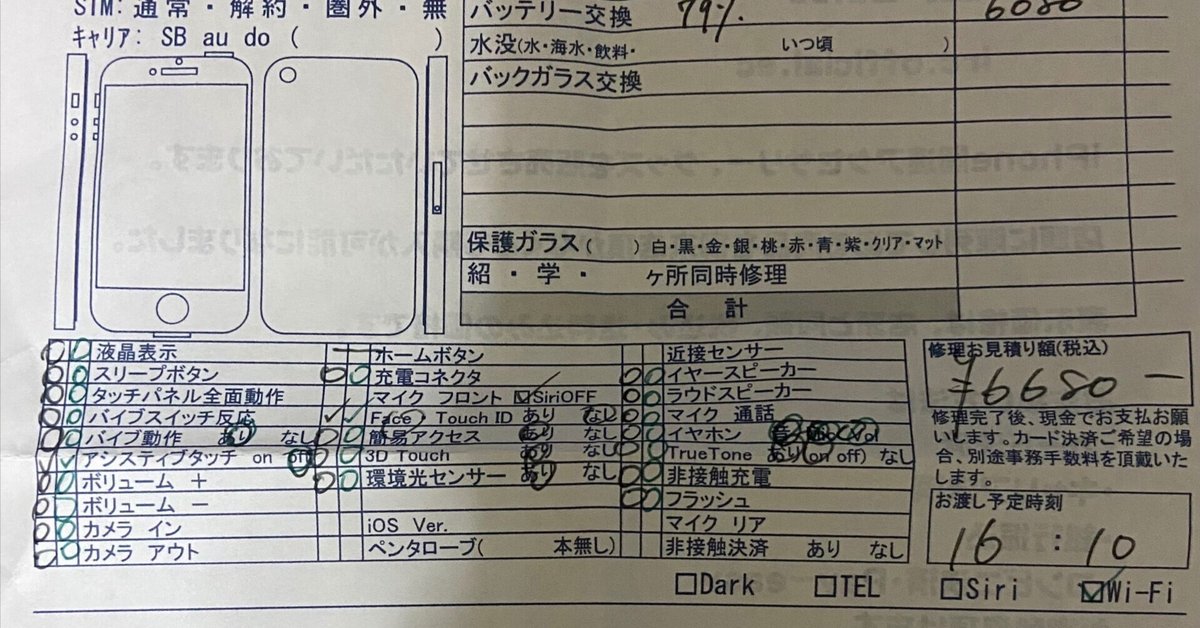 SIM:通常・解約・圏外・無
キャリア: SB au do ( )
バッテリー交換 79%
水没(水・海水・飲料・ いつ頃 )
バックガラス交換
保護ガラス( ) 白・黒・金・銀・桃・赤・青・紫・クリア・マット
紹・学・ ヶ所同時修理
合計
液晶表示
スリープボタン
タッチパネル全面動作
バイブスイッチ反応
バイブ動作 あり なし
アシスティブタッチ on off
ボリューム +
ボリューム −
カメラ イン
カメラ アウト
ホームボタン
充電コネクタ
マイク フロント ☑SiriOFF
Face Touch ID あり なし
簡易アクセス あり なし
3D Touch あり なし
環境光センサー あり なし
iOS Ver.
ペンタローブ( 本無し)
近接センサー
イヤースピーカー
ラウドスピーカー
マイク 通話
イヤホン
TrueTone あり(on off) なし
非接触充電
フラッシュ
マイク リア
非接触決済 あり なし
修理お見積り額(税込)
¥6680−
修理完了後、現金でお支払お願
いします。カード決済ご希望の場
合、別途事務手数料を頂戴いた
します。
お渡し予定時刻
16:10
□Dark □TEL □Siri ☑Wi-Fi